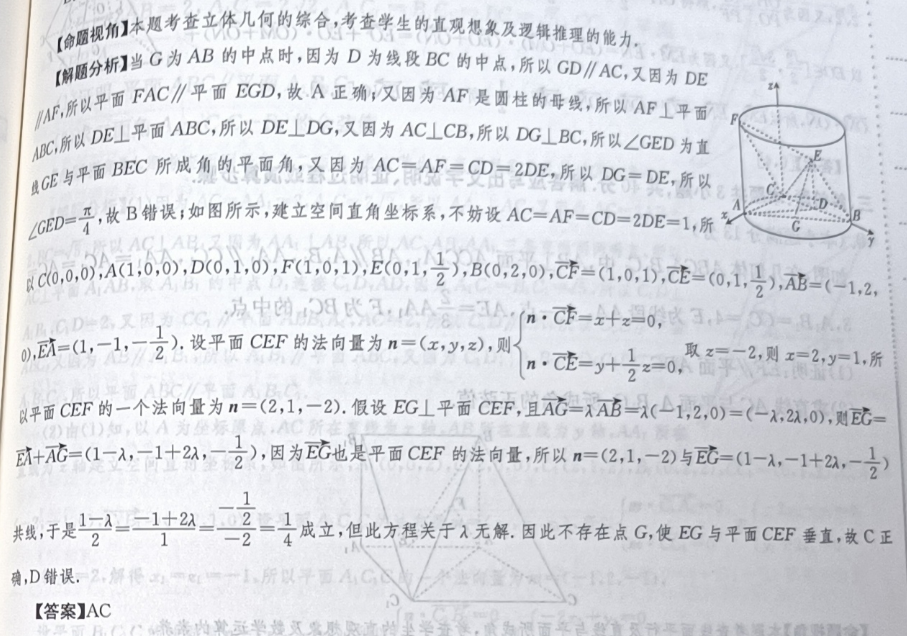 【命题视角】本题考查立体几何的综合,考查学生的直观想象及逻辑推理的能力.
【解题分析】当 G 为 AB 的中点时,因为 D 为线段 BC 的中点,所以 GD∥AC,又因为 DE
∥AF,所以平面 FAC∥平面 EGD,故 A 正确;又因为 AF 是圆柱的母线,所以 AF⊥平面
ABC,所以 DE⊥平面 ABC,所以 DE⊥DG,又因为 AC⊥CB,所以 DG⊥BC,所以∠GED 为直
线 GE 与平面 BEC 所成角的平面角,又因为 AC=AF=CD=2DE,所以 DG=DE,所以
∠GED=π/4,故 B 错误;如图所示,建立空间直角坐标系,不妨设 AC=AF=CD=2DE=1,所
以 C(0,0,0),A(1,0,0),D(0,1,0),F(1,0,1),E(0,1,1/2),B(0,2,0),CF→=(1,0,1),CE→=(0,1,1/2),AB→=(-1,2,
0),EA→=(1,-1,-1/2). 设平面 CEF 的法向量为 n=(x,y,z),则{n·CF→=x+z=0, n·CE→=y+1/2z=0, 取 z=-2,则 x=2,y=1,所
以平面 CEF 的一个法向量为 n=(2,1,-2). 假设 EG⊥平面 CEF,且AG→=λAB→=λ(-1,2,0)=(-λ,2λ,0),则EG→=
EA→+AG→=(1-λ,-1+2λ,-1/2),因为EG→也是平面 CEF 的法向量,所以 n=(2,1,-2)与EG→=(1-λ,-1+2λ,-1/2)
共线,于是(1-λ)/2=(-1+2λ)/1=(-1/2)/(-2)=1/4 成立,但此方程关于 λ 无解. 因此不存在点 G,使 EG 与平面 CEF 垂直,故 C 正
确,D 错误.
【答案】AC
z
F
E
C
D
A
B
x
G
y